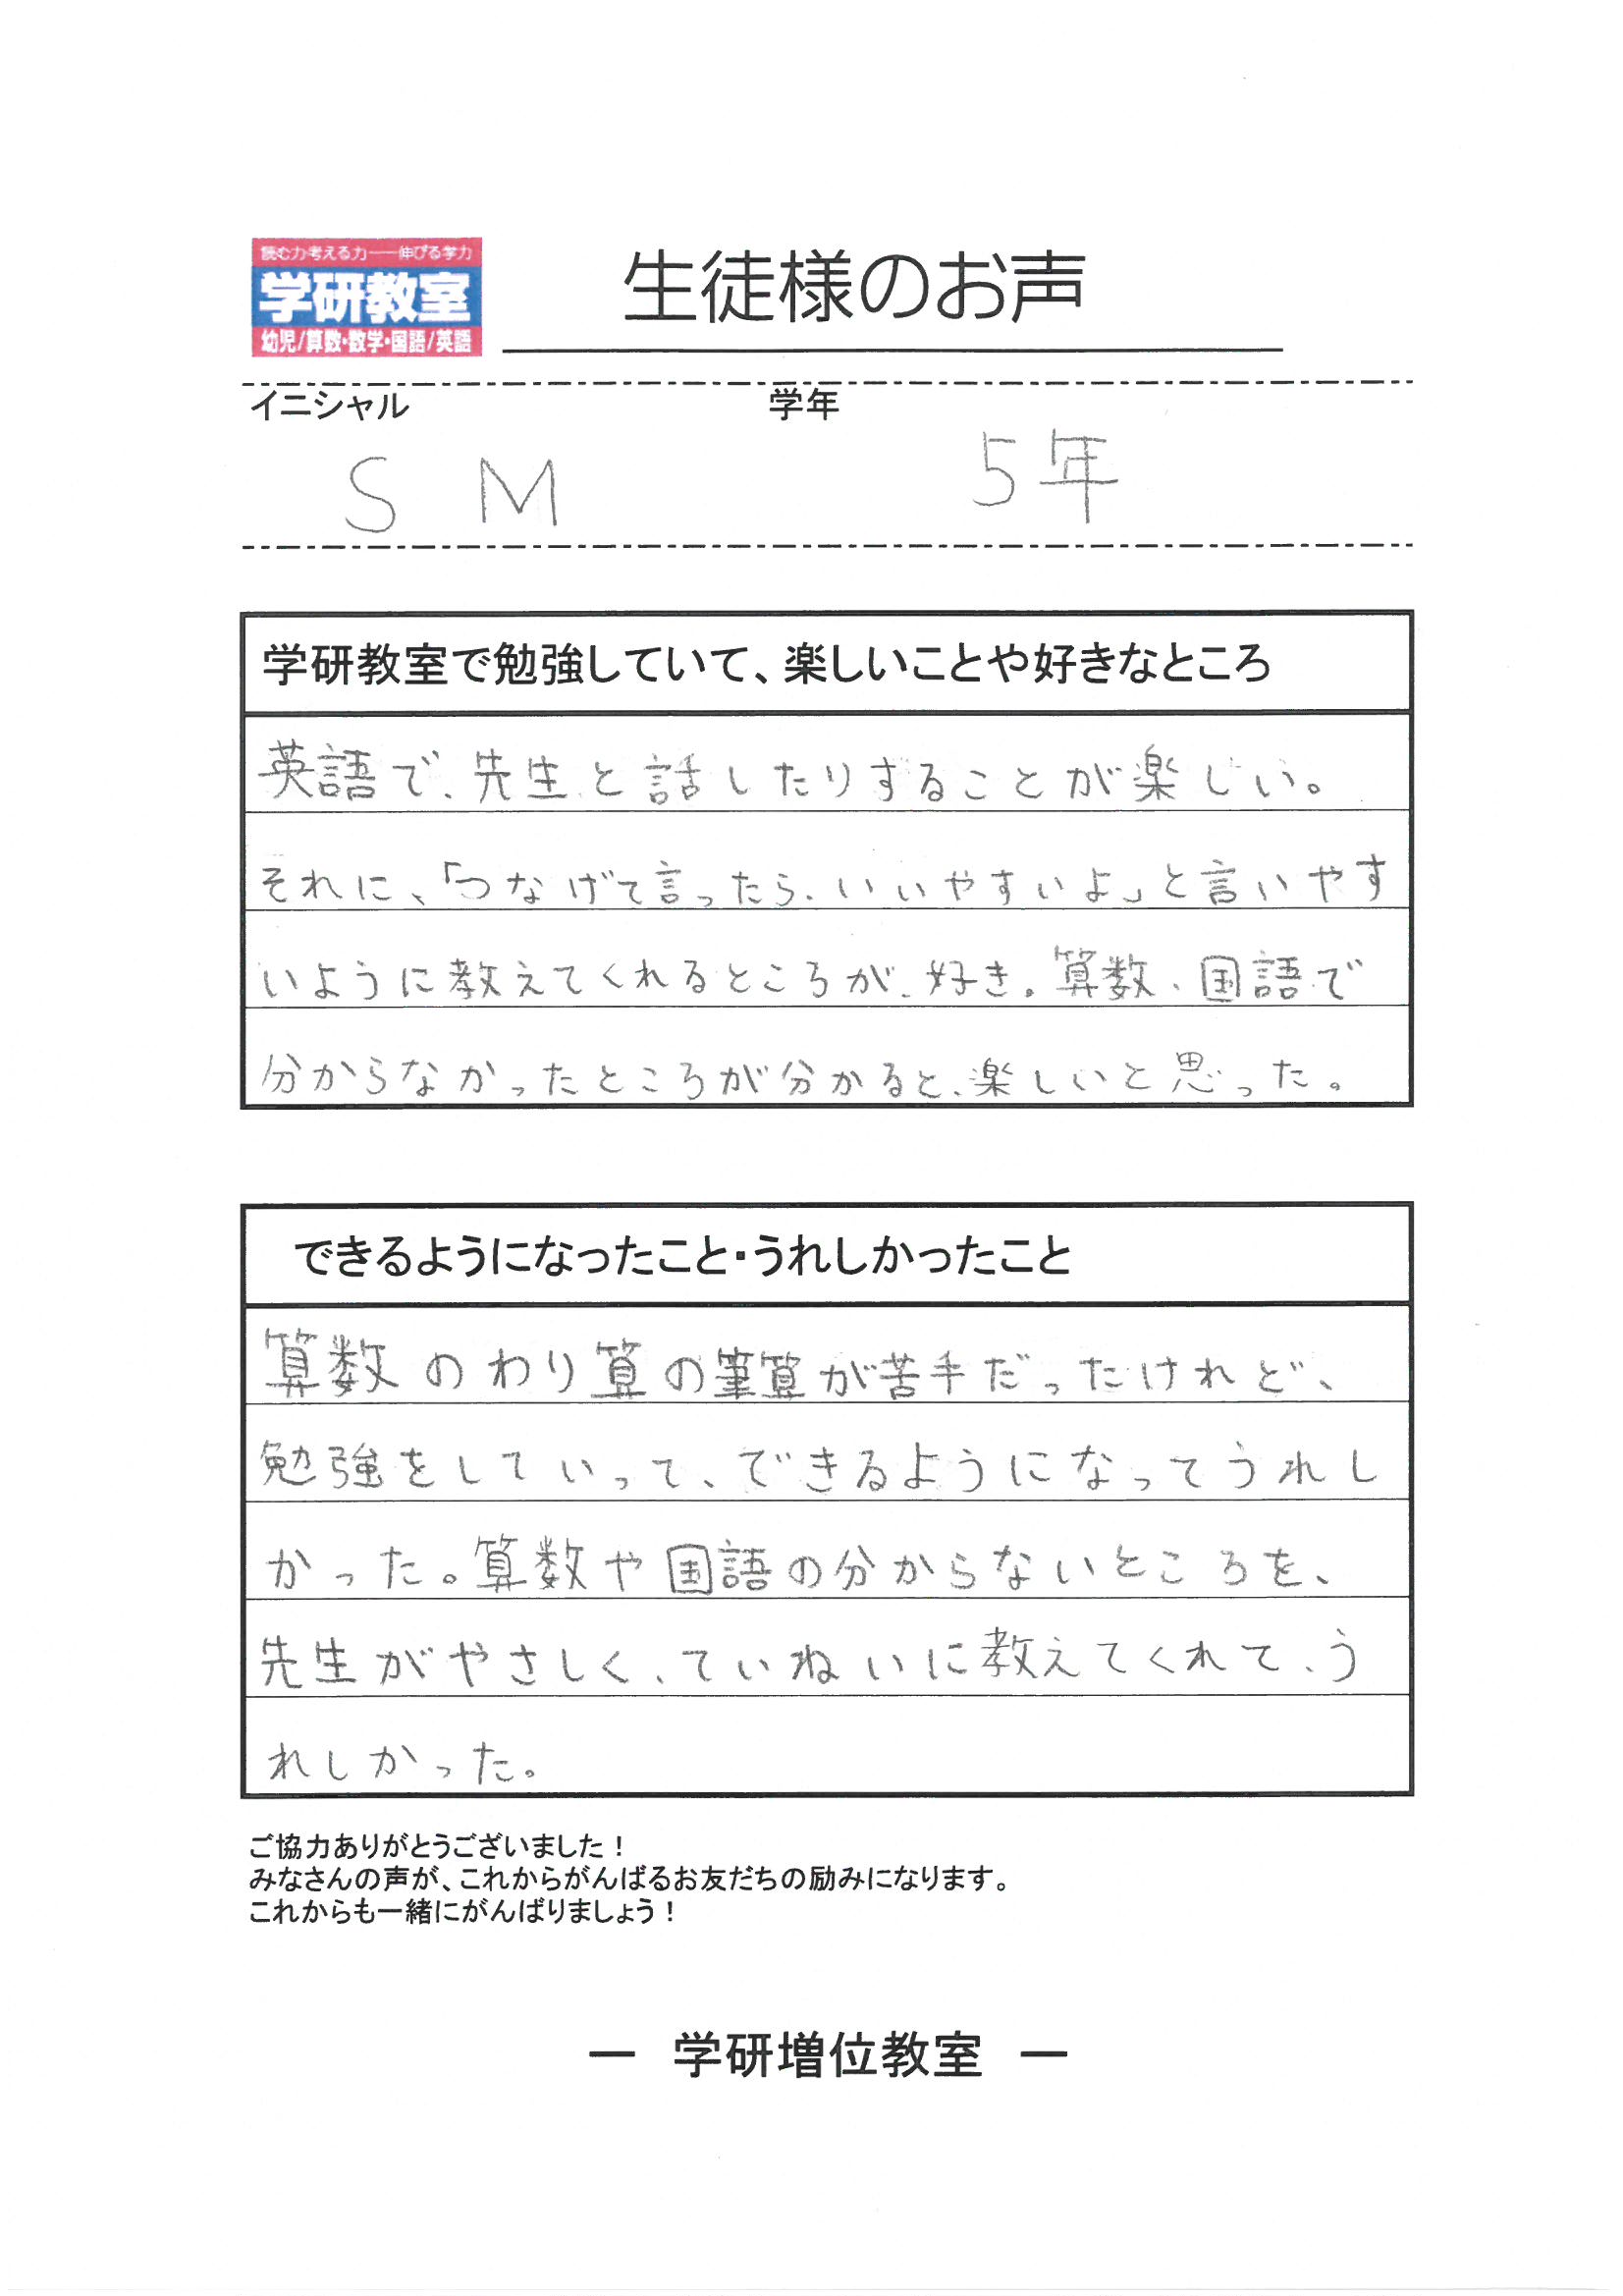 読む力考える力——伸びる学力
学研教室
幼児/算数・数学・国語/英語
生徒様のお声
イニシャル 学年
S M 5年
学研教室で勉強していて、楽しいことや好きなところ
英語で、先生と話したりすることが楽しい。
それに、「つなげて言ったら、いいやすいよ」と言いやす
いように教えてくれるところが、好き。算数、国語で
分からなかったところが分かると、楽しいと思った。
できるようになったこと・うれしかったこと
算数のわり算の筆算が苦手だったけれど、
勉強をしていって、できるようになってうれし
かった。算数や国語の分からないところを、
先生がやさしく、ていねいに教えてくれて、う
れしかった。
ご協力ありがとうございました！
みなさんの声が、これからがんばるお友だちの励みになります。
これからも一緒にがんばりましょう！
― 学研増位教室 ―